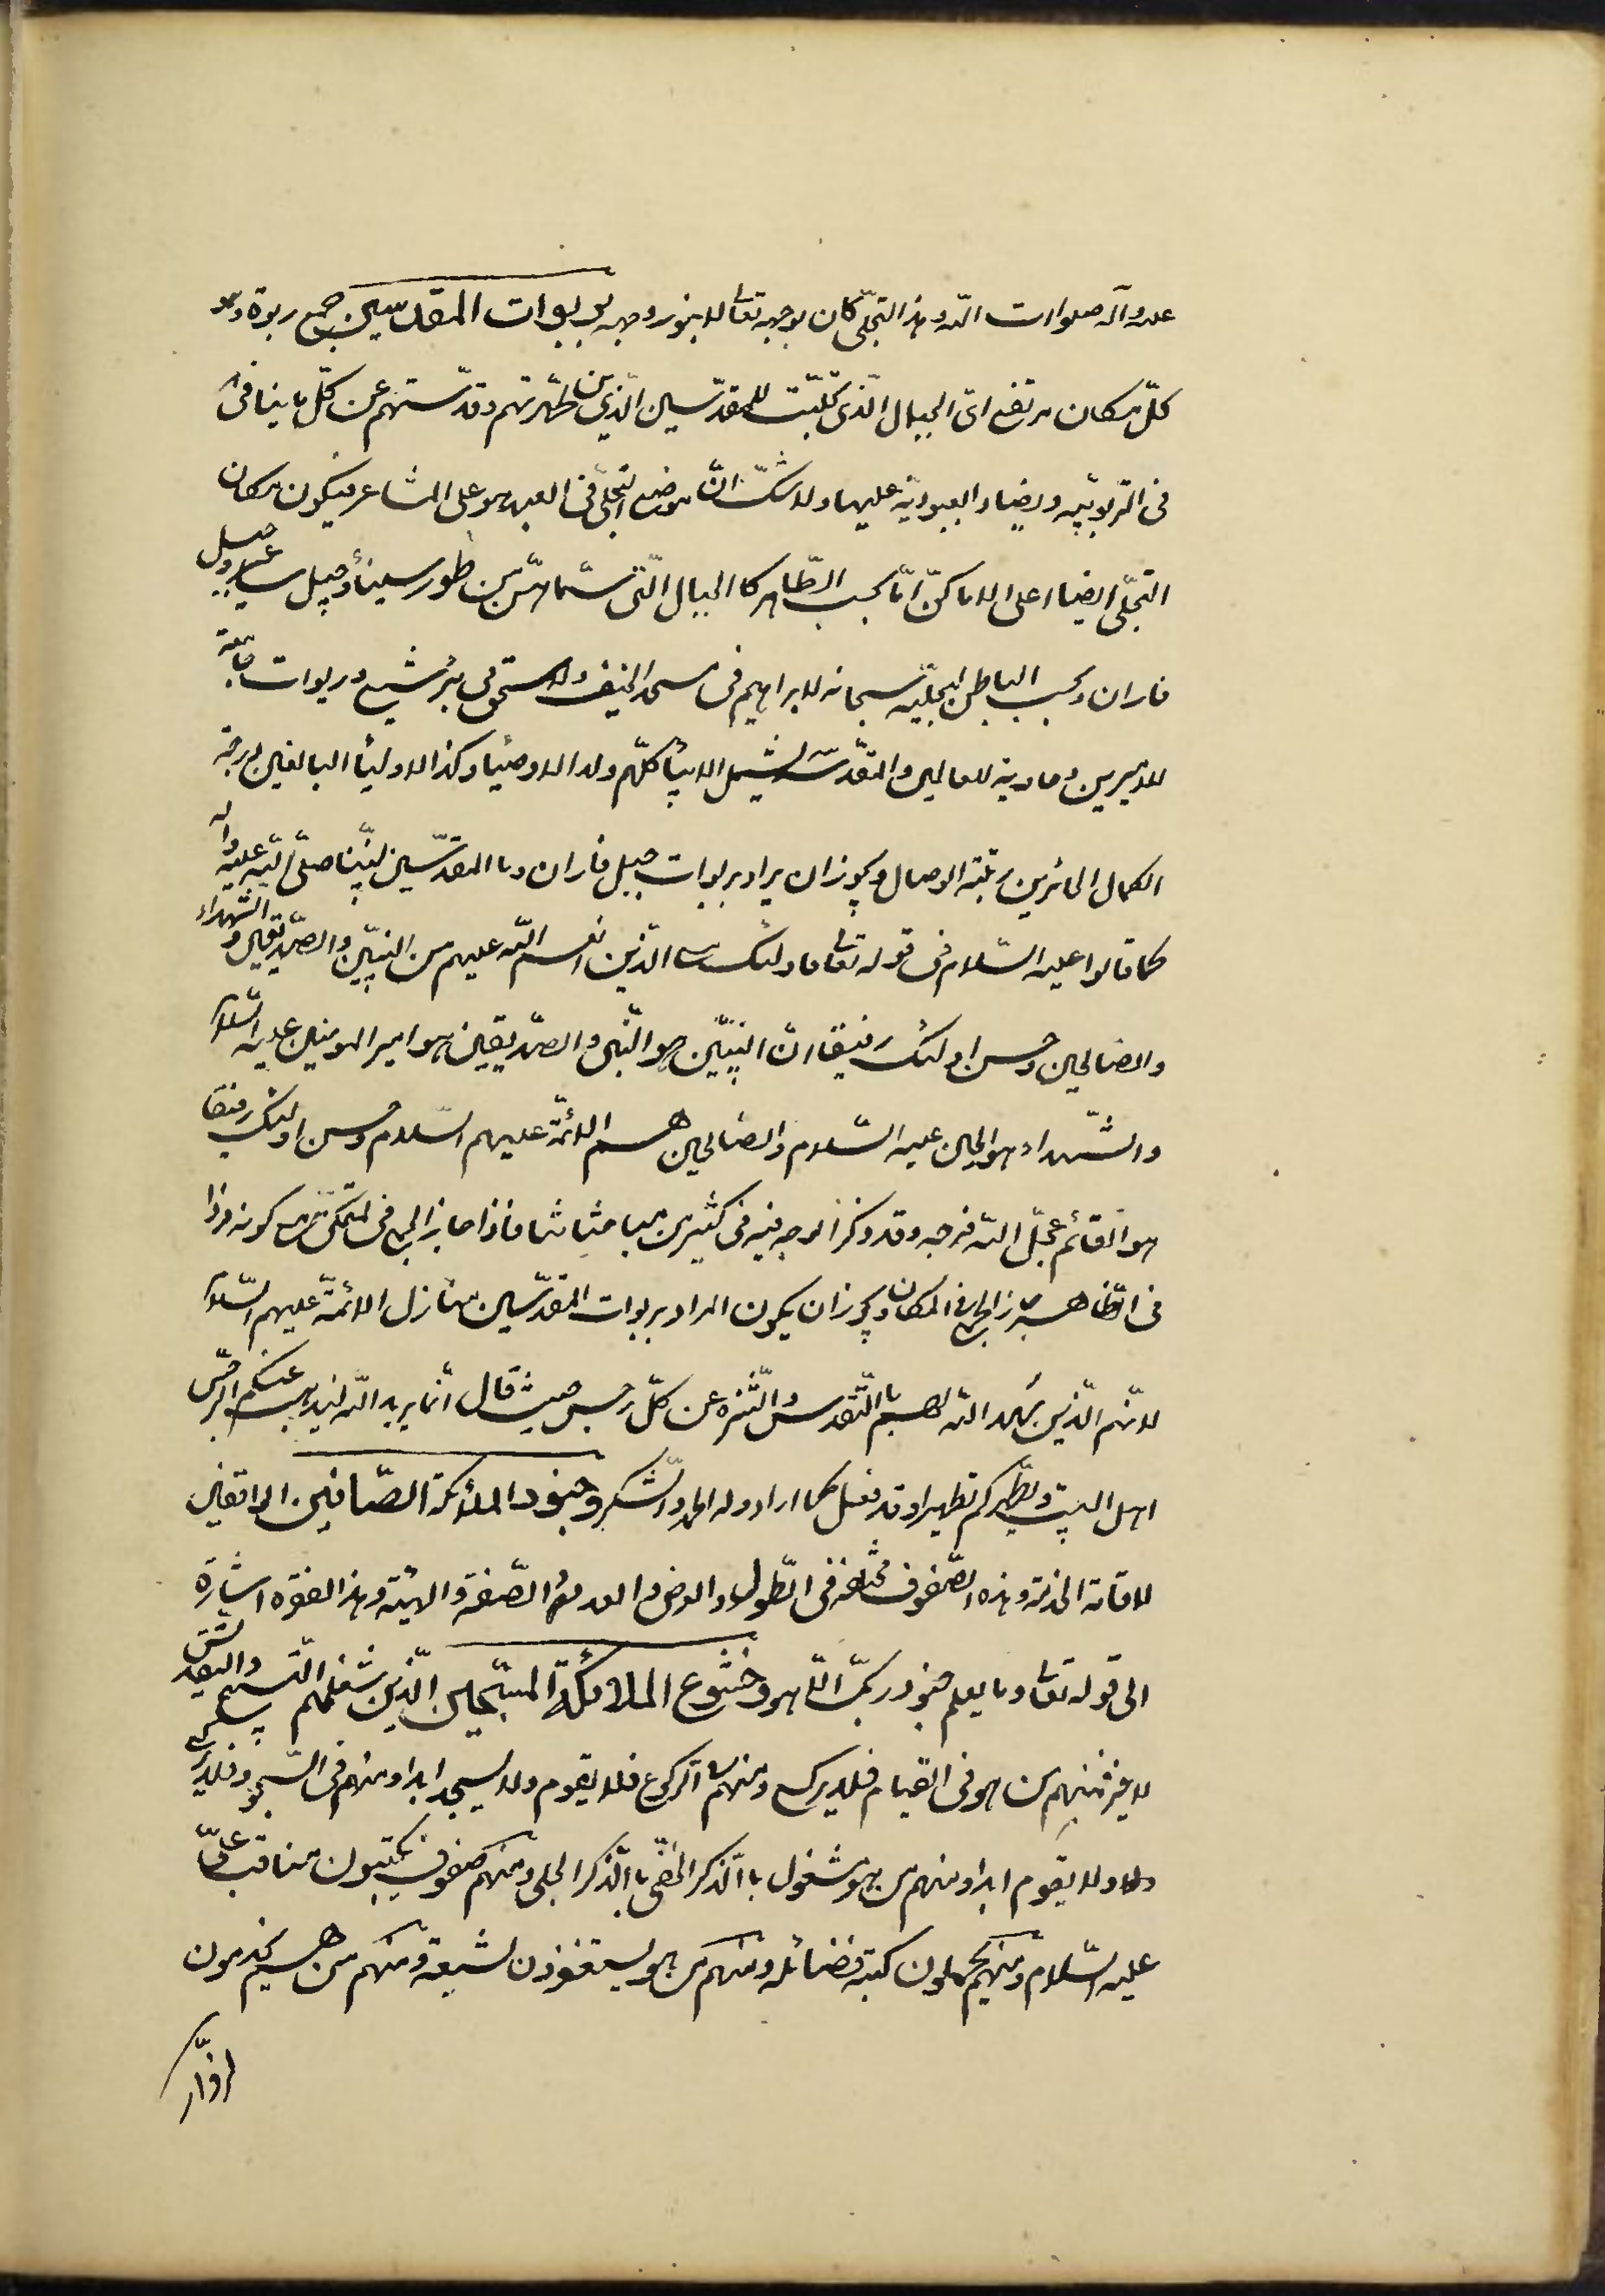 عليه وآله صلوات الله وهذا التجلّي كان بوجهه تعالى لا بنور وجهه بربوات المقدسين جمع ربوة وهو
كلّ مكان مرتفع اى الجبال الّذى للمقدّسين الّذين طهّرتهم وقدّستهم عن كلّ ما ينافى
فى الربوبيّة ويضاد العبوديّة عليها ولا شكّ انّ موضع التجلّى فى العبد هو على المشاعر فيكون مكان
التجلّى ايضا اعلى الاماكن امّا بحسب الظّاهر كا الجبال الّتى من طور سيناء وجبل ساعير وجبل
فاران وبحسب الباطن لتجلّيه سبحانه لابراهيم فى مسجد الخيف ولاسحق فى بئر شيع وربوات
للعالمين والمقدّسين يشمل الانبياء كلّهم والاوصياء وكذا الاولياء البالغين درجة
الكمال الحائزين رتبة الوصال ويجوز ان يراد بربوات جبل فاران وبا المقدّسين نبيّنا صلّى الله عليه وآله
كما قالوا عليه السّلام فى قوله تعالى فاولئك مع الّذين انعم الله عليهم من النبيّين والصّديقين والشهداء
والصّالحين وحسن اولئك رفيقا انّ النبيّين هو النّبى والصّديقين هو امير المومنين عليه السّلام
والشّهداء هو الحسين عليه السّلام والصّالحين هم الائمّة عليهم السّلام وحسن اولئك رفيقا
هو القائم عجّل الله فرجه وقد ذكر الوجه فيه فى كثير من مباحثاتنا فاذا جاز الجمع فى المتمكّن مع كونه فردا
فى الظّاهر جاز الجمع فى المكان ويجوز ان يكون المراد بربوات المقدّسين منازل الائمّة عليهم السّلام
لانّهم الّذين شهد الله لهم با التّقدس والتّنزه عن كلّ رجس حيث قال انّما يريد الله ليذهب عنكم الرّجس
اهل البيت ويطهّركم تطهيرا وقد فعل كما اراد وله الحمد والشّكر وجنود الملائكة الصّافين الواقفين
لاقامة الخدمة وهذه الصّفوف مختلفة فى الطّول والعرض والعدد والصّفة والهيئة وهذا الفقره اشارة
الى قوله تعالى وما يعلم جنود ربّك الّا هو وخشوع الملائكة المسبّحين الّذين شغلهم التّسبيح والتقديس
لا يفتر فمنهم من هو فى القيام فلا يركع ومنهم با الرّكوع فلا يقوم ولا يسجد ابدا ومنهم فى السّجود فلا يركع
ولا يقوم ابدا ومنهم من هو مشغول با الذّكر الخفّى با الذّكر الجلى ومنهم صفوف يكتبون مناقب علىّ
عليه السّلام ومنهم يحملون كتبة فضائله ومنهم من هو يستغفرون لشيعة ومنهم من هم يخدمون